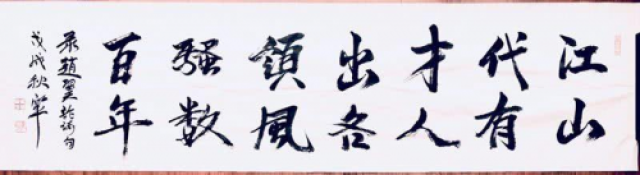 江山
代有
才人
出各
領風
骚数
百年
录趙翼论诗句
戊戌秋